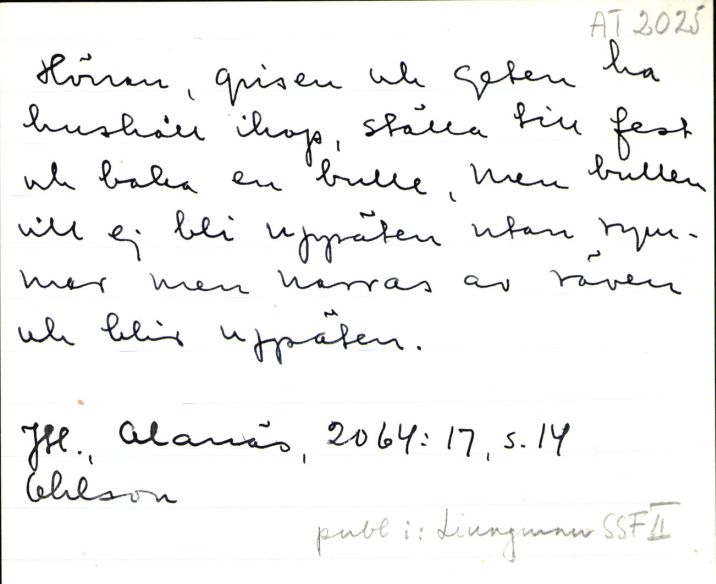 AT 2025
Hönan, grisen och geten ha
hushåll ihop, ställa till fest
och baka en bulle, men bullen
vill ej bli uppäten utan rym-
mer men narras av räven
och blir uppäten.
Jtl., Alanäs, 2064:17, s. 14
Ohlson
publ i: Liungman SSF II